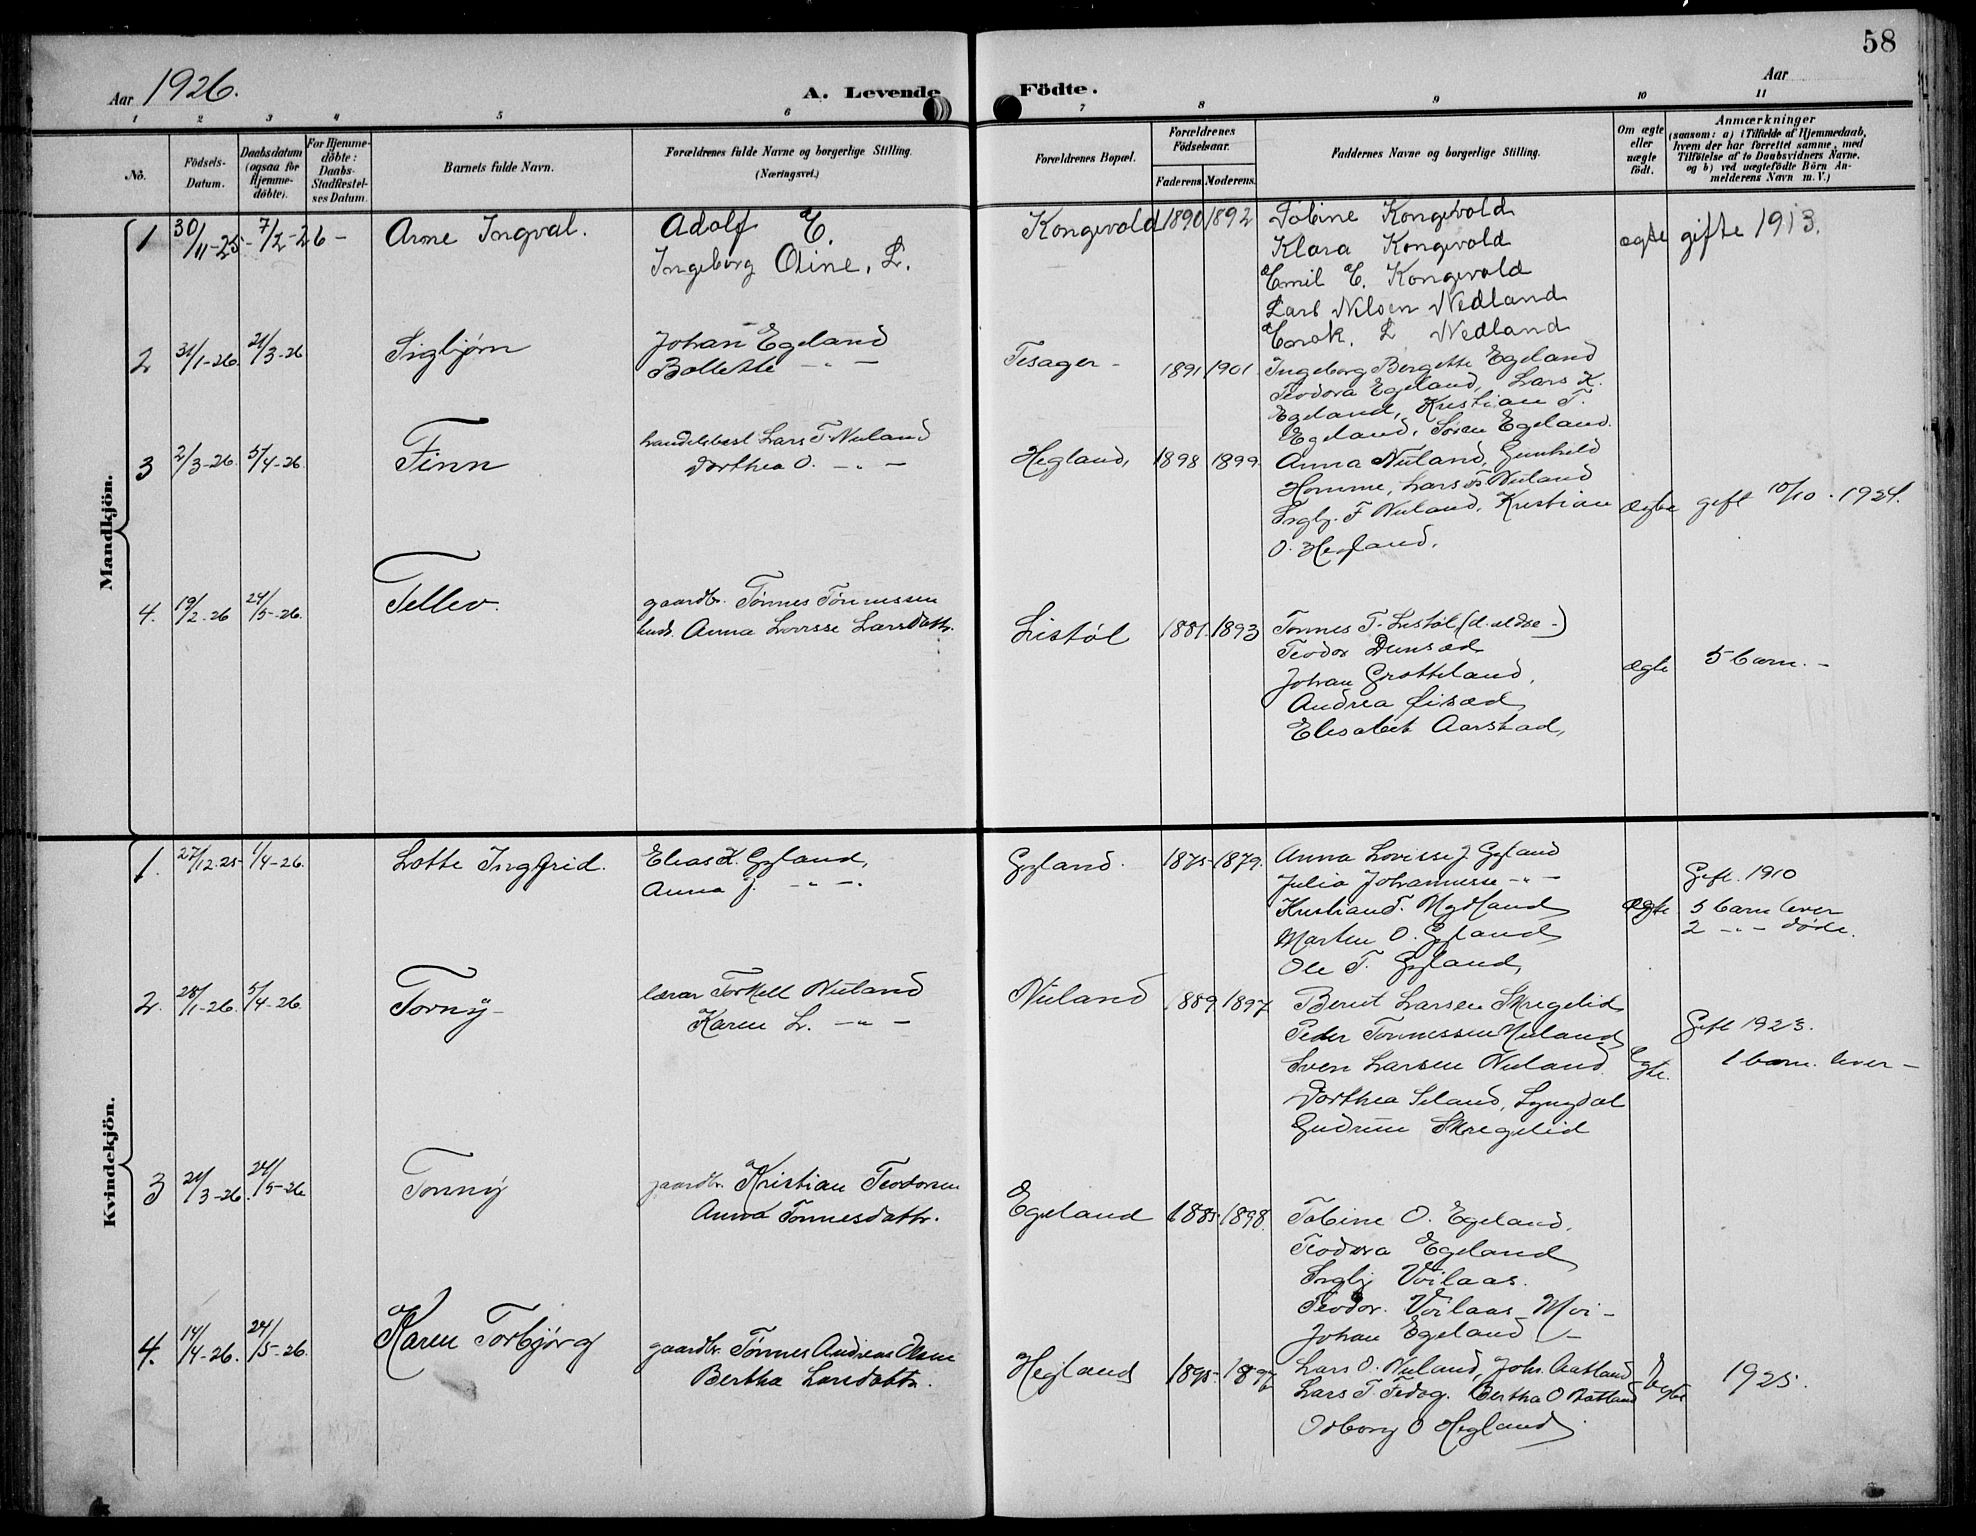 58
Aar 1926.
A. Levende Födte.
Aar
1 2 3 4 5 6 7 8 9 10 11
No.
Födsels-
Datum.
Daabsdatum
(ogsaa for
Hjemme-
döbte).
For Hjemme-
döbte:
Daabs-
Stadfæstel-
ses Datum.
Barnets fulde Navn.
Forældrenes fulde Navne og borgerlige Stilling.
(Næringsvei.)
Forældrenes Bopæl.
Forældrenes
Födselsaar.
Faderens. Moderens.
Faddernes Navne og borgerlige Stilling.
Om ægte
eller
uægte
födt.
Anmærkninger
(saasom: a) i Tilfælde af Hjemmedaab,
hvem der har forrettet samme, med
Tilföielse af to Daabsvidners Navne,
og b) ved uægtefödte Börn An-
melderens Navn m. V.)
Mandkjön.
1 30/11-25- 7/2-26- Arne Ingval. Adolf E.
Ingeborg Oline, L.
Kongevold 1890 1892 Tobine Kongevold
Klara Kongevold
Emil E. Kongevold
Lars Nilsen Nedland
Enok. L Nedland
ægte gifte 1913.
2 31/1-26. 21/3-26 Sigbjørn Johan Egeland
Bollette - " -
Tesager - 1891 1901 Ingeborg Bergette Egeland
Teodora Egeland, Lars K.
Egeland, Kristian T.
Egeland, Søren Egeland.
3 2/3-26. 5/4-26. Finn handelsbest Lars T. Nuland
Dorthea O. - " -
Hegland, 1898 1899. Anna Nuland, Gunhild
Homme, Lars Nuland
Sigbj. F Nuland, Kristian
O. Hegland.
Ægte gift 10/10. 1924.
4. 19/2-26 24/5-26. Tellev. gaardbr. Tønnes Tønnessen
hust. Anna Lovisse Larsdattr.
Listøl 1881. 1893 Tønnes T. Listøl (d. eldre -)
Teodor Dunsæd
Johan Grøtteland,
Andrea Øisæd,
Elisabet Aarstad,
Ægte 5 barn. -
Kvindekjön.
1. 27/12-25- 1/4-26. Lotte Inggrid. Elias K. Gyland,
Anna J. - " -.
Gyland. 1875- 1879. Anna Lovisse J. Gyland
Julia Johannesse - " -
Kristian T. Mydland
Marten O. Gyland
Ole T. Gyland,
Ægte. Gift. 1910
5 barn lever
2 - " - døde.
2. 28/1-26. 5/4-26. Torny - lærer Torkell Nuland
Karen L. - " -
Nuland 1889 1897 Berit Larsen Skregelid
Peder Tønnessen Nuland
Sven Larsen Nuland.
Dorthea Seland, Lyngdal
Gudrun Skregelid
Ægte. Gift 1923.
1 barn. lever -
3 21/3-26. 24/5-26 Tonny gaardbr. Kristian Teodorsen
Anna Tønnesdattr.
Egeland 1885- 1898. Tobine O. Egeland.
Teodora Egeland
Sigbj Voilaas.
Teodor. Voilaas Moi -
Johan Egeland -
4. 14/4-26. 24/5-26. Karen Torbjørg gaardbr. Tønnes Andreas Olsen
Bertha Larsdattr.
Hegland 1895- 1897 Lars O. Nuland, Johs. Aatland
Lars T. Fedog. Bertha O Aatland
Odborg O Hegland
Ægte 1925.